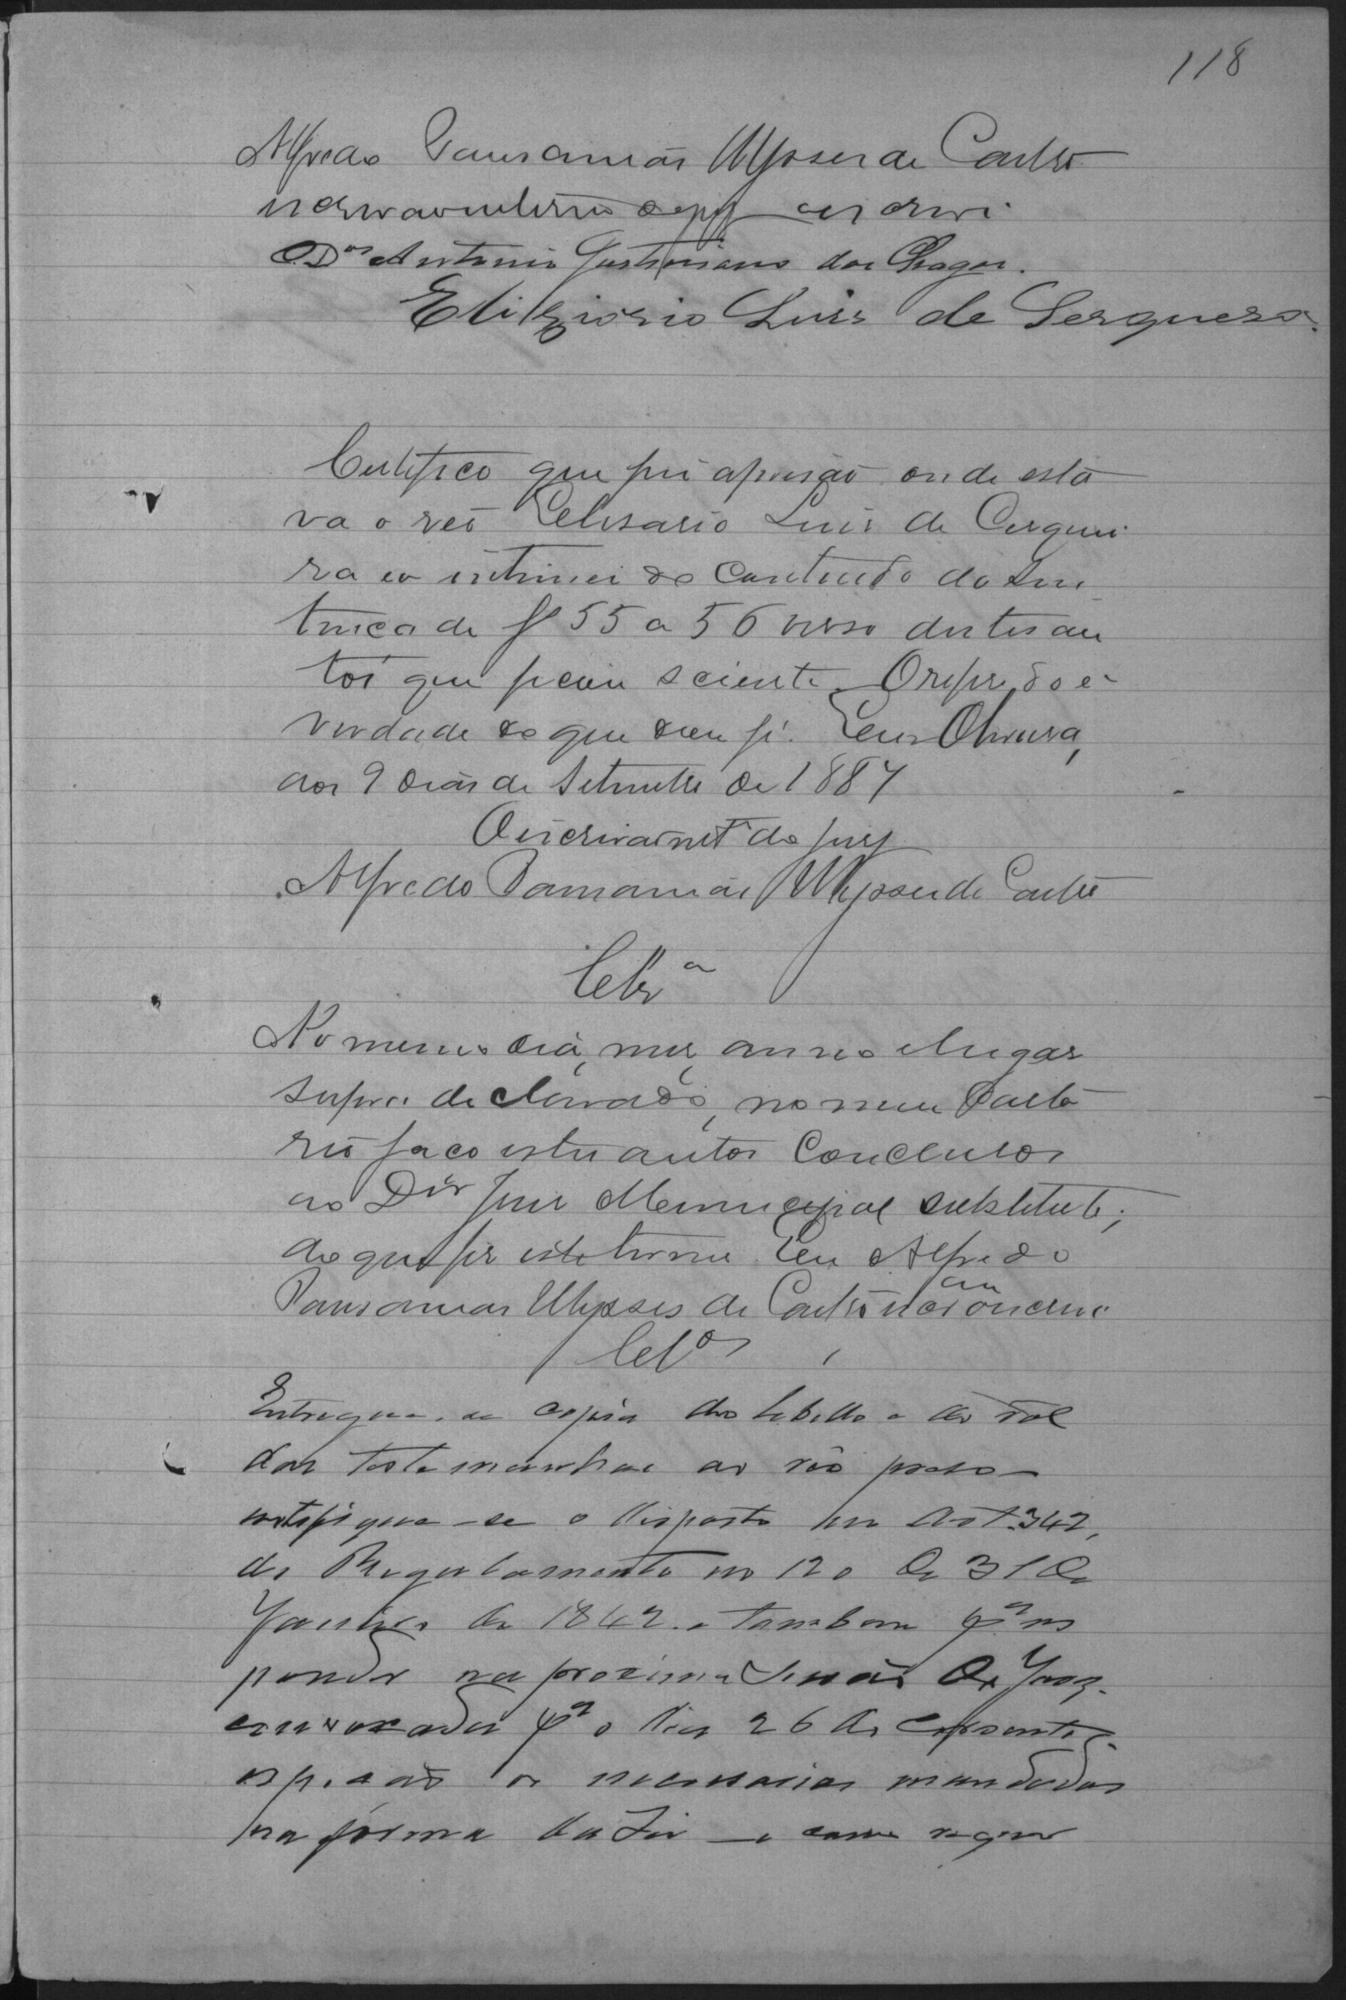 118
Alfredo Pausanias Ulysses de Castro
escrivão interino do jury escrevi
Dor Antonio Justiniano das Chagas.
Elizizorio Luis de Serquera.
Certifico que fui a prisão onde esta
va o réo Elisario Luis de Cerquei
ra eo intimei do contendo da sen
tença de fl 55 a 56 verso destes au
tos que ficou sciente. O referido é
verdade do que dou fé.
aos 9 dias de Setembro de 1887
O escrivão intº do jury
Alfredo Pausanias Ulysses de Castro
Clsª
No mesmo dia, mez, anno e lugar
supra declarado, no meu Carto
rio faço estes autos conclusos
ao Dor Juiz Municipal substituto;
do que fiz este termo. Eu Alfredo
Pausanias Ulysses de Castro escrivão escrevi
Clsos
Entregue-se copia do libello e do rol
das testemunhas ao réo preso
notifique-se o disposto no Art. 342,
do Regulamento no 120 de 31 de
Janeiro de 1842. e tambem pª res
ponder na proxima Sessão do Jury.
convocada pª o dia 26 do corrente
espeção os necessarios mandados
na forma da Lei e como requer